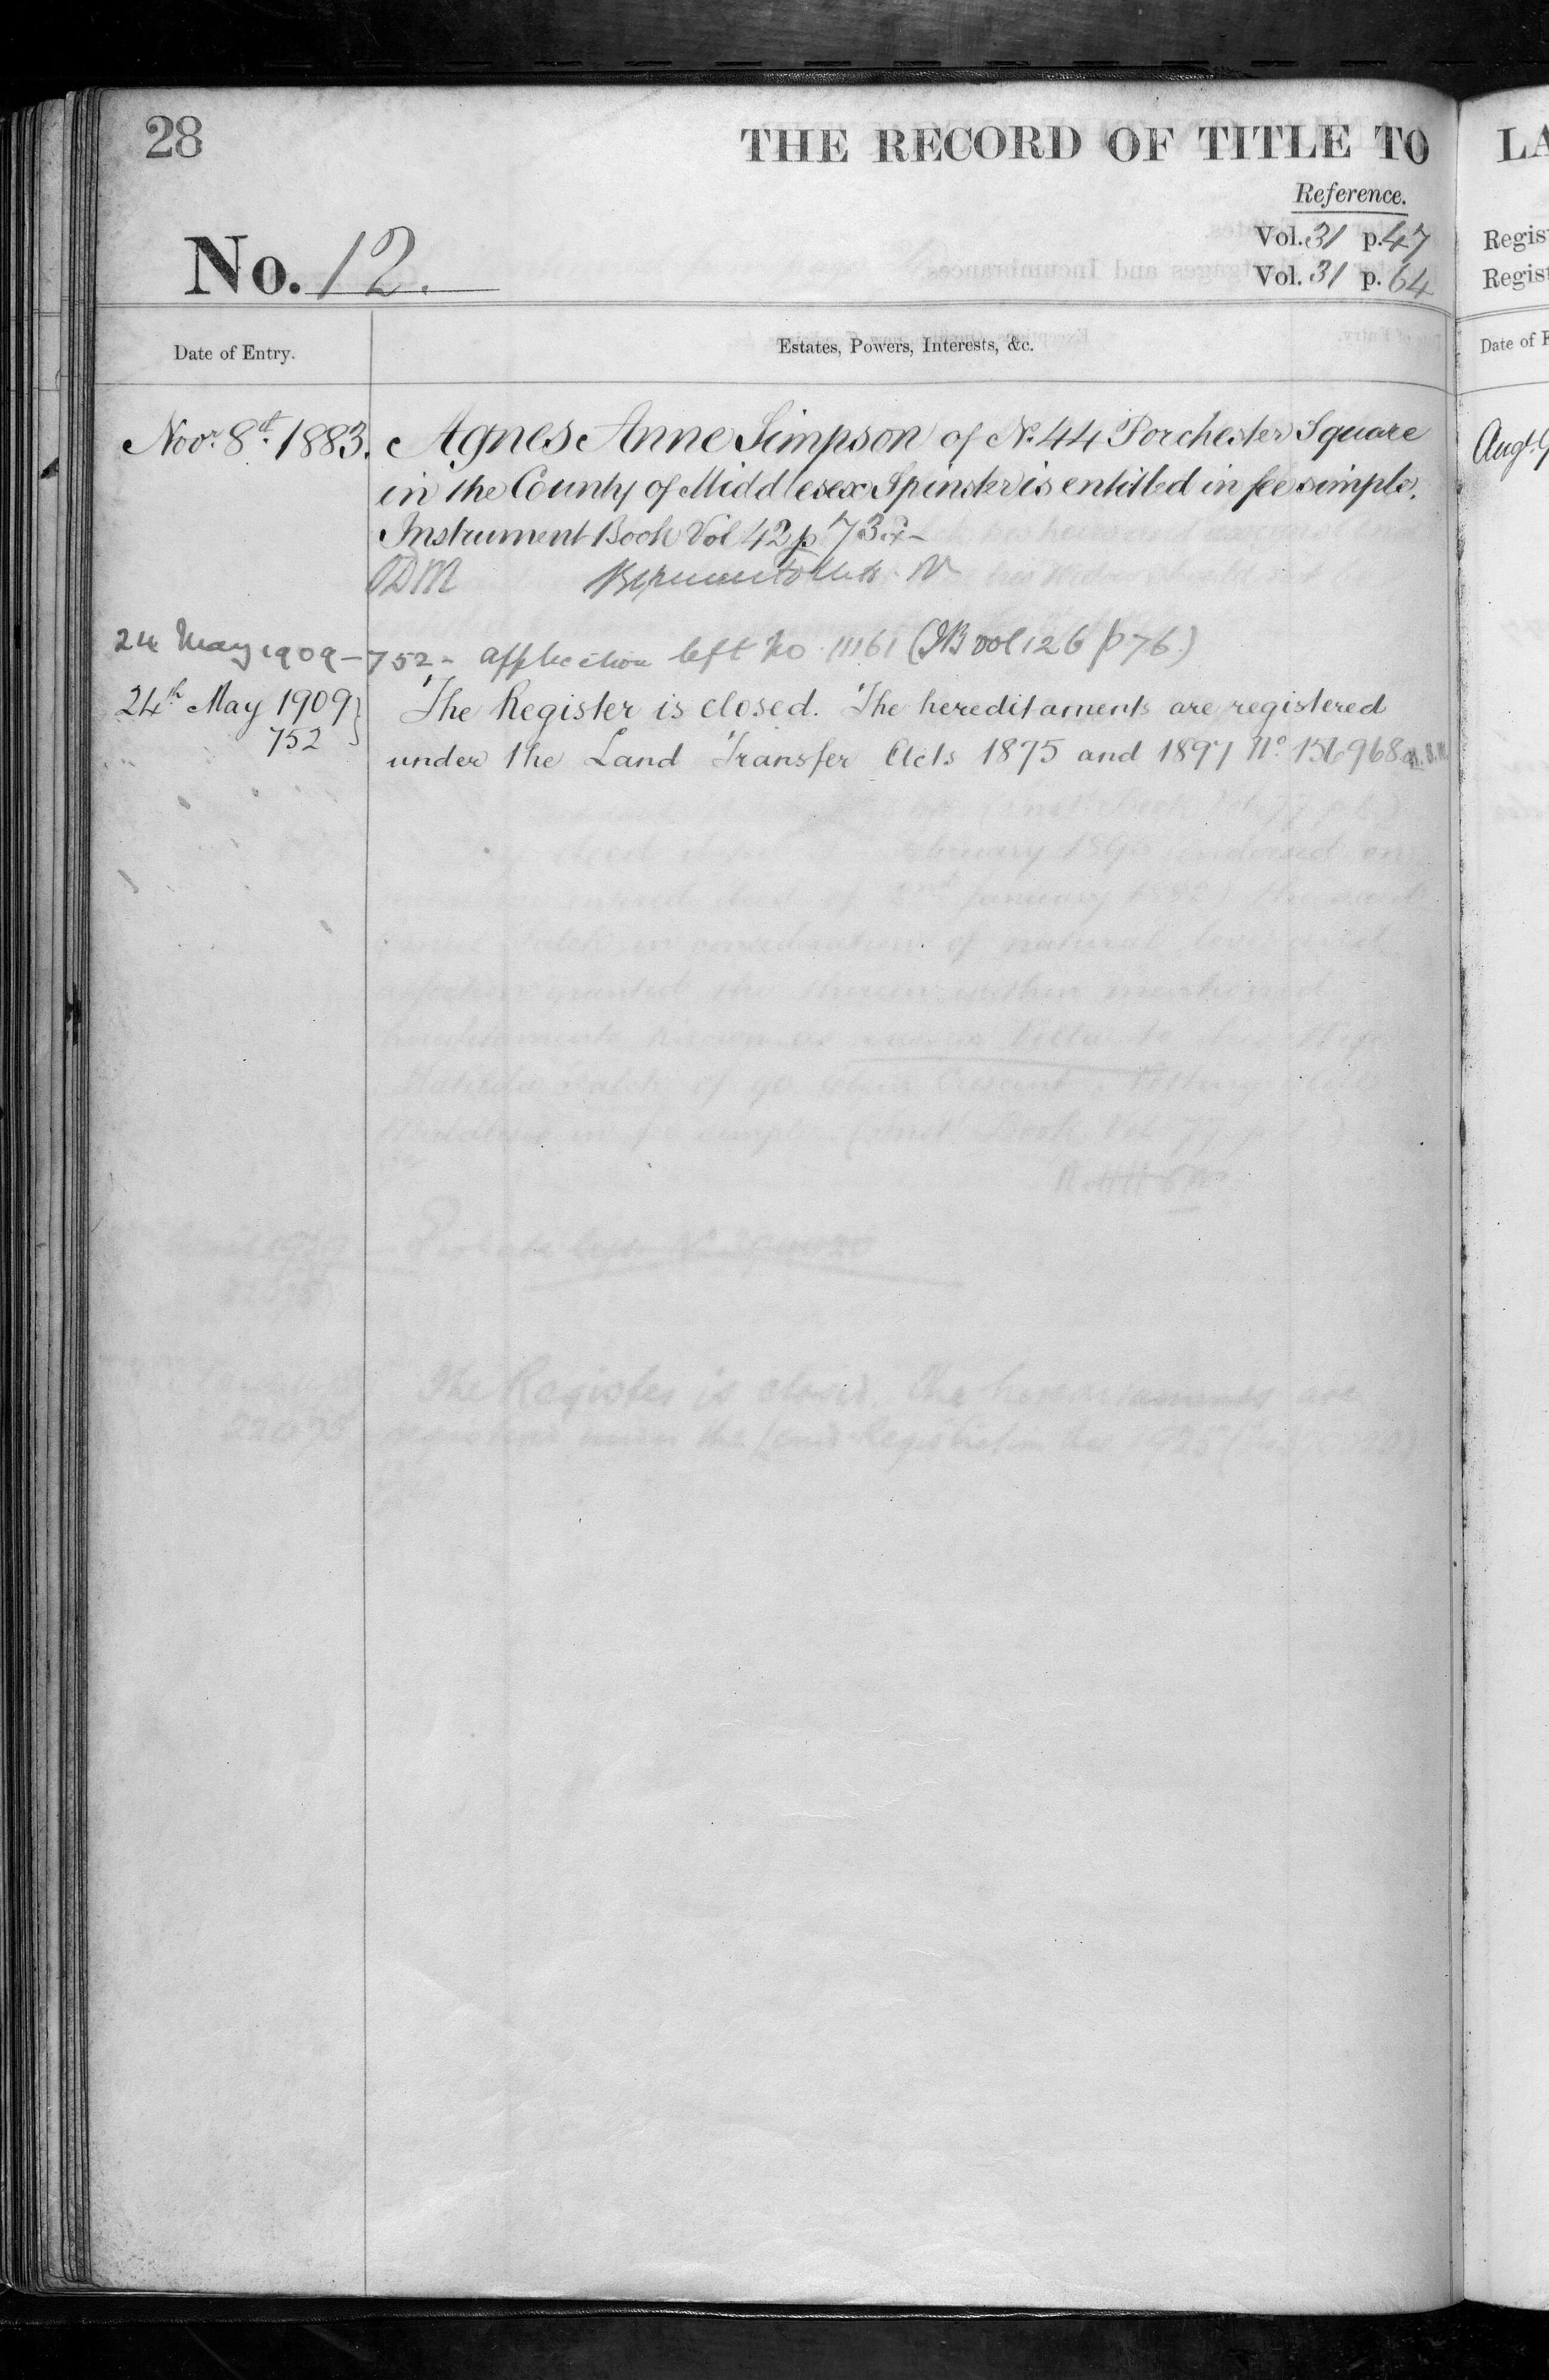 28
THE RECORD OF TITLE TO
Reference.
Vol. 31 p. 47
No. 12.
Vol. 31 p. 64
Date of Entry.
Estates, Powers, Interests, &c.
Novr. 8th. 1883.
Agnes Anne Simpson of No. 44 Porchester Square
in the County of Middlesex Spinster is entitled in fee simple.
Instrument Book Vol 42 p 73.
24 May 1909 – 752 – application left No. 11161 (IB vol 126 p 76.)
24th May 1909 }
752
The Register is closed. The hereditaments are registered
under the Land Transfer Acts 1875 and 1897 No. 156968
LA
Regist
Regist
Date of E
Augt. 9